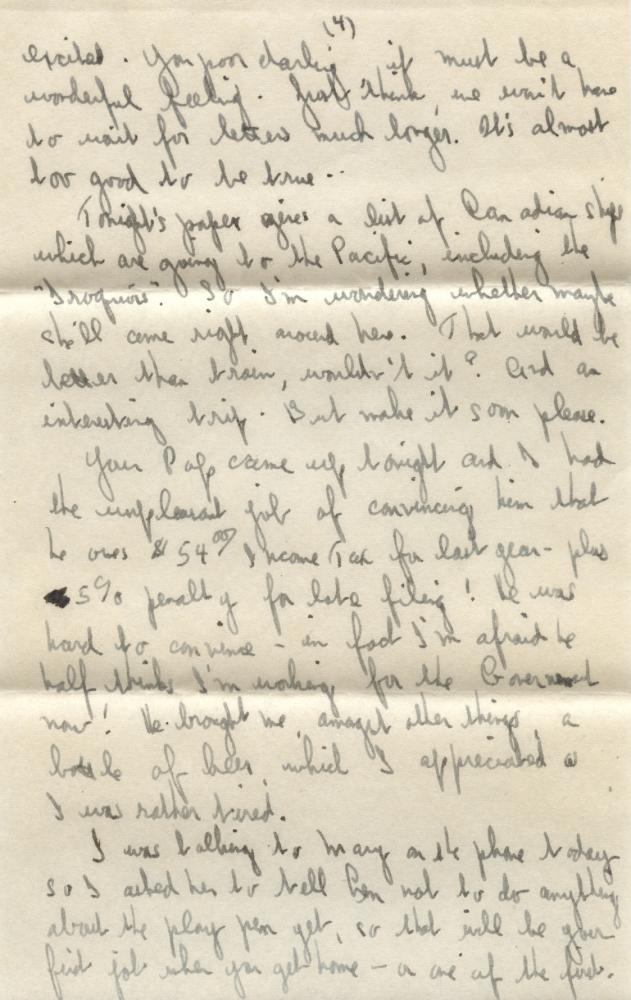 (4)
excited. You poor darling, it must be a
wonderful feeling. Just think, we won't have
to wait for letters much longer. It's almost
too good to be true..
Tonight's paper gives a list of Canadian ships
which are going to the Pacific, including the
"Iroquois". So I'm wondering whether maybe
she'll come right around here. That would be
better than train, wouldn't it? And an
interesting trip. But make it soon please.
Your Pop came up tonight and I had
the unpleasant job of convincing him that
he owes $54.00 Income Tax for last year - plus
5% penalty for late filing! He was
hard to convince - in fact I'm afraid he
half thinks I'm working for the Government
now! He brought me, amongst other things, a
bottle of beer, which I appreciated as
I was rather tired.
I was talking to Mary on the phone today
so I asked her to tell Ben not to do anything
about the play pen yet, so that will be your
first job when you get home - or one of the first.